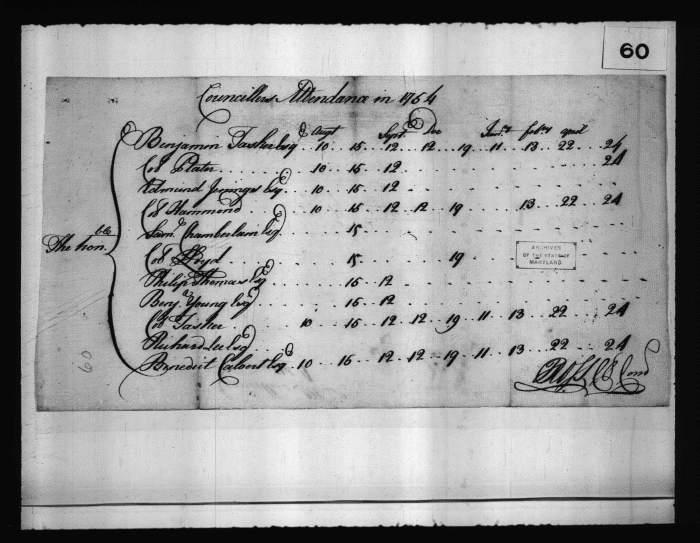 60
Councillers Attendance in 1754
Augt Septr Dec Janry febry april
Benjamin Tasker Esqr 10 .. 15 .. 12 .. 12 .. 19 .. 11 .. 13 .. 22 .. 24
Col Plater 10 .. 15 .. 12 24
Edmund Jenings Esqr 10 .. 15 .. 12
Col Hammond 10 .. 15 .. 12 .. 12 .. 19 13 .. 22 .. 24
Saml Chamberlain Esqr 15
The honble Col Lloyd 15 19
Philip Thomas Esqr 15 .. 12
Benja Young Esqr 15 .. 12
Col Tasker 10 .. 15 .. 12 .. 12 .. 19 .. 11 .. 13 .. 22 .. 24
Richard Lee Esqr 15 .. 12 .. 12 .. 19 .. 11 .. 13 .. 22 .. 24
Benedict Calvert Esqr 10 .. 15 .. 12 .. 12 .. 19 .. 11 .. 13 .. 22 .. 24
ARCHIVES
OF THE STATE OF
MARYLAND
60